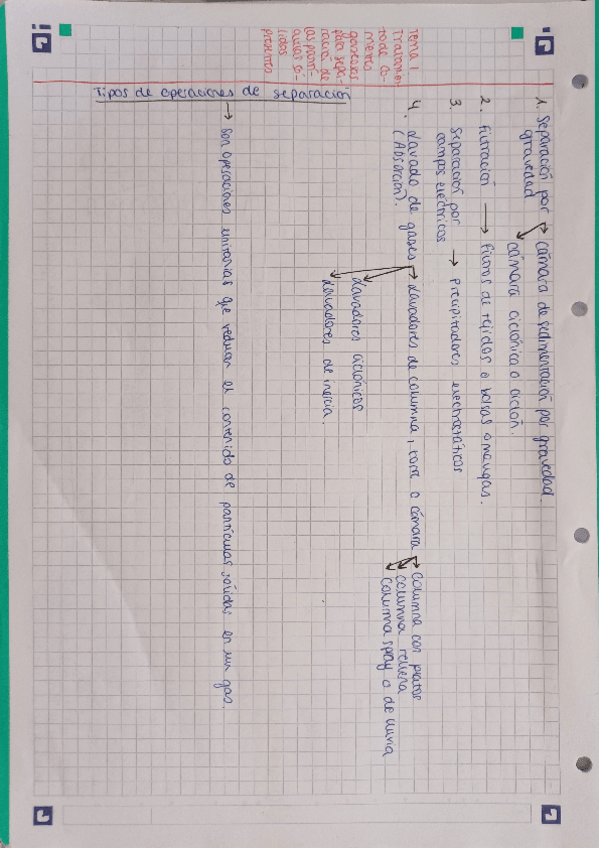 Tema 1.
Tratamien-
to de co-
rrientes
gaseosas
para sepa-
ración de
las partí-
culas só-
lidas
presentes
Tipos de operaciones de separación
→ Son operaciones unitarias que reducen el contenido de partículas sólidas en un gas.
1. Separación por gravedad → cámara de sedimentación por gravedad.
→ cámara ciclónica o ciclón.
2. Filtración → Filtros de tejidos o bolsas o mangas.
3. Separación por campos eléctricos → Precipitadores electrostáticos
4. Lavado de gases (Absorción). → Lavadores de columna, torre o cámara → columna con platos
→ columna rellena
→ columna spray o de lluvia
→ Lavadores ciclónicos
→ Lavadores de inercia.